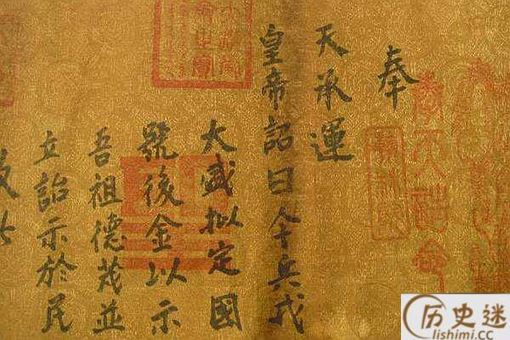 奉
天承運
皇帝詔曰今兵戎
大盛拟定國
號後金以示
吾祖德茂並
立詔示於民
历史迷
lishimi.cc